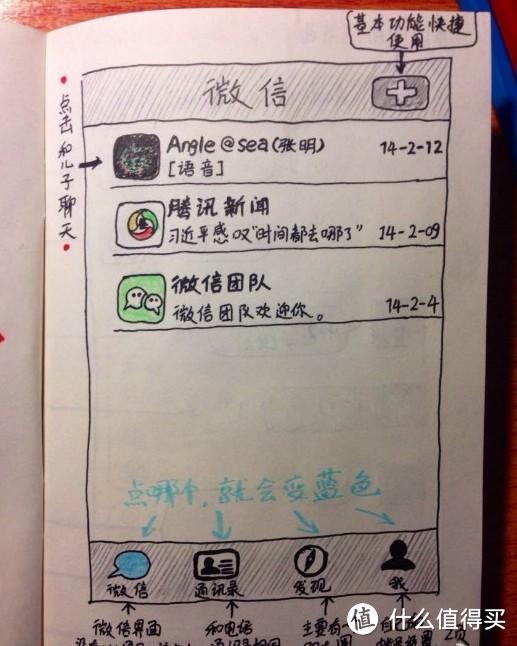 基本功能快捷
使用
微信
点击和儿子聊天
Angle@sea(张明)
14-2-12
[语音]
腾讯新闻
习近平感叹"时间都去哪了"
14-2-09
微信团队
微信团队欢迎你。
14-2-4
点哪个,就会变蓝色
微信
通讯录
发现
我
微信界面
和电话
主要有
值 什么值得买